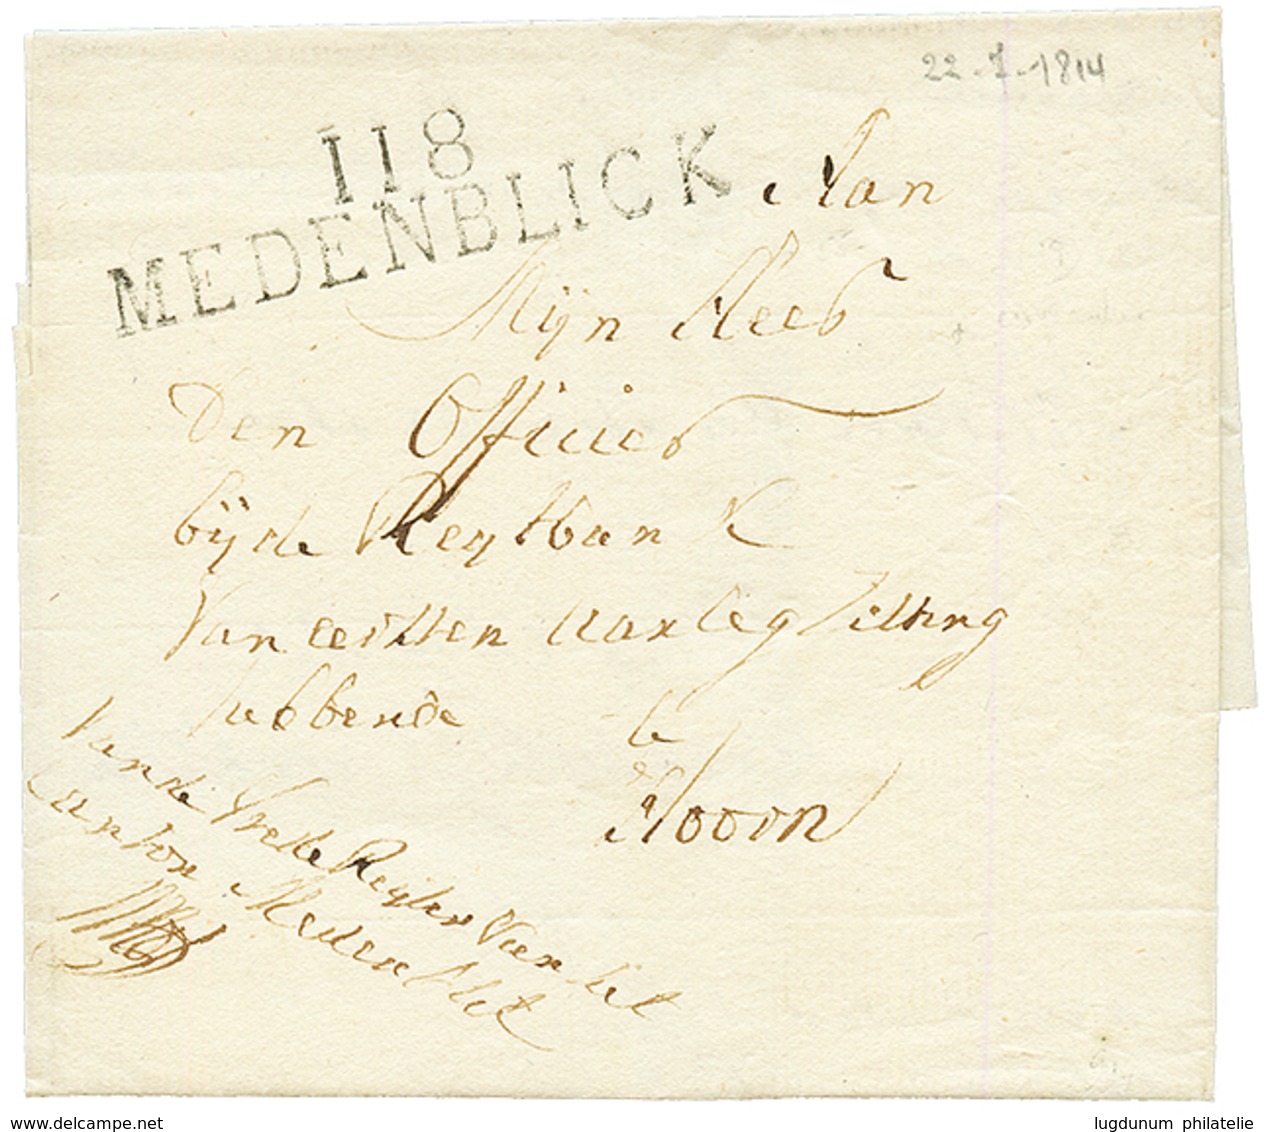 22-7-1814
118
MEDENBLICK
Aan
Mijn Heer
Den Officier
bij de Regtbank
Van eersten Aanleg Zitting
hebbende te
Hoorn
Van de Vrede Regter Van het
Canton Medenblik
www.delcampe.net
lugdunum philatelie